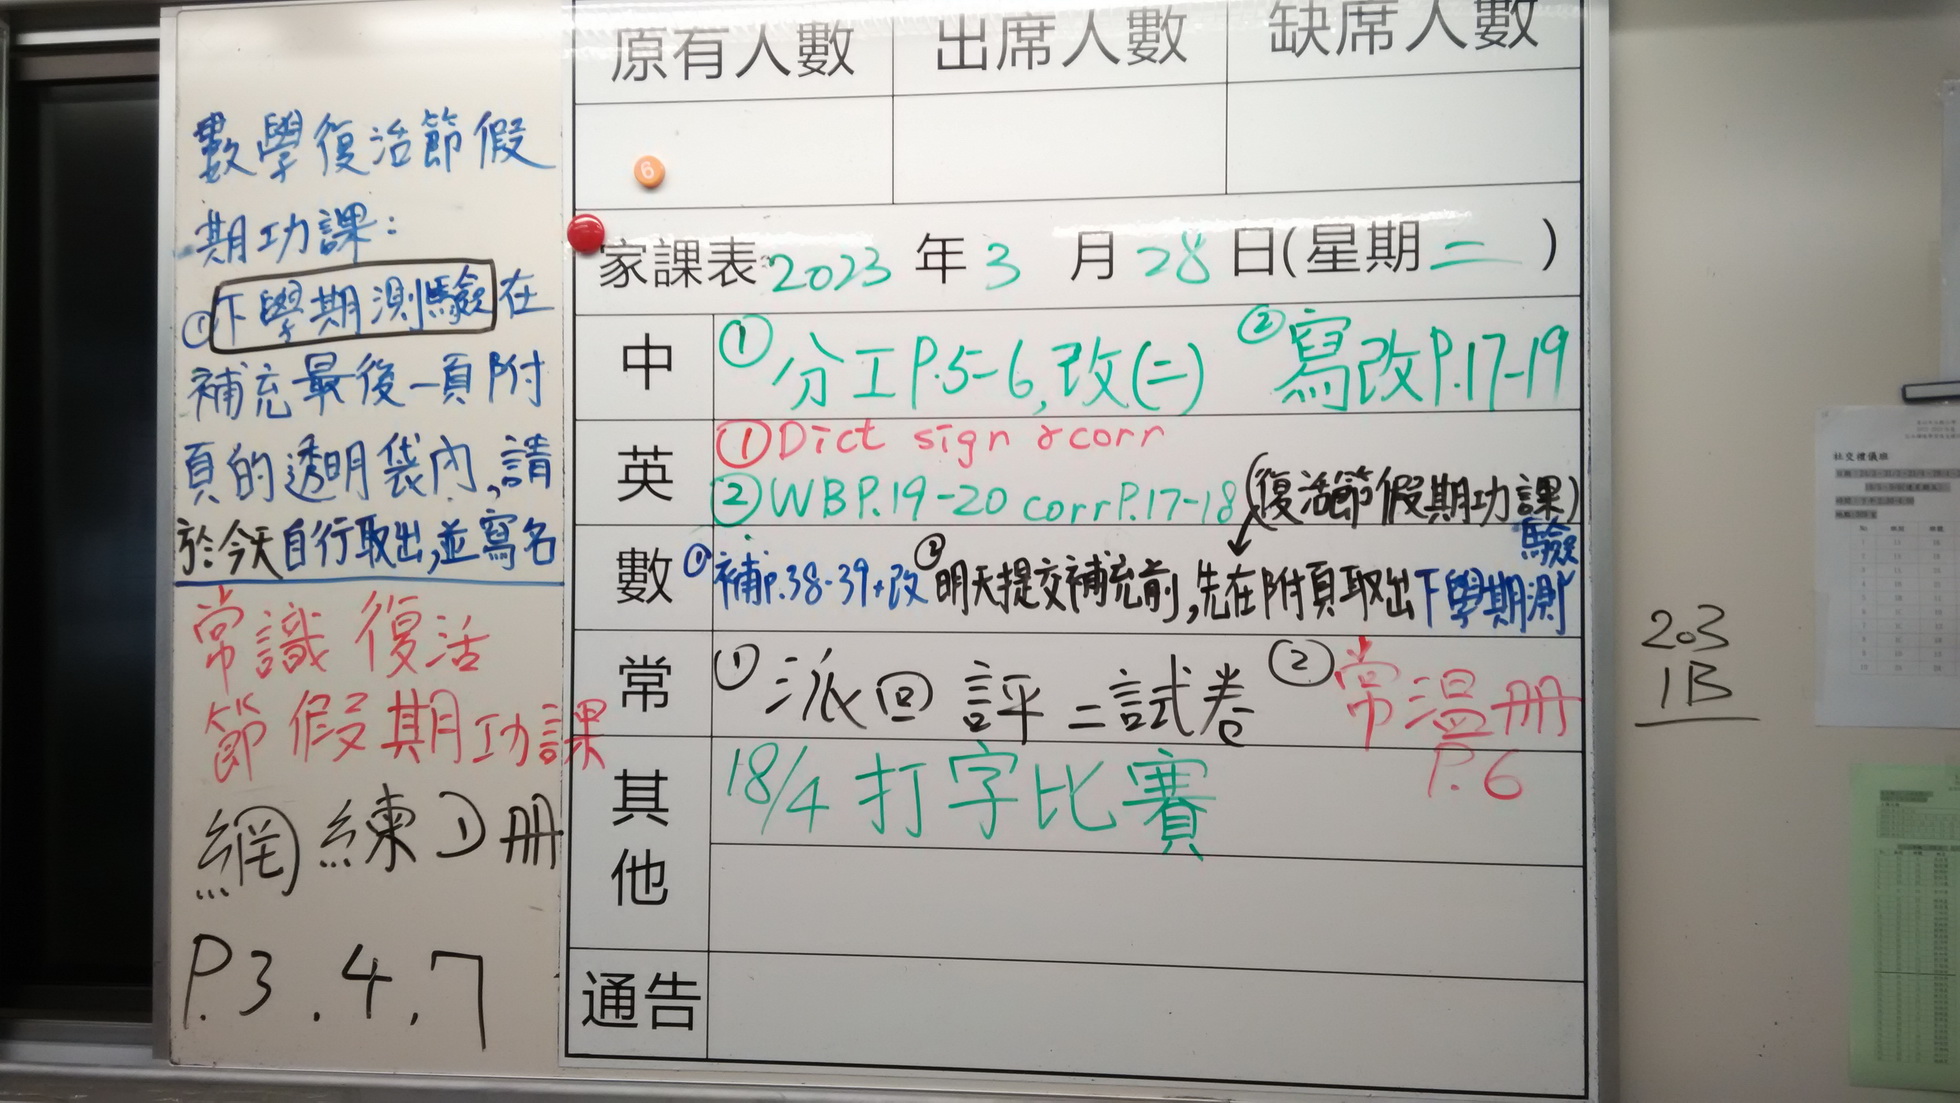 數學復活節假
期功課:
①下學期測驗在
補充最後一頁附
頁的透明袋內,請
於今天自行取出,並寫名
常識 復活
節假期功課
網練①冊
P.3.4.7
原有人數 出席人數 缺席人數
6
家課表:2023年3月28日(星期二)
中 ①分工P.5-6,改(二) ②寫改P.17-19
英 ①Dict sign & corr
②WB P.19-20 corr P.17-18 (復活節假期功課)
數 ①補P.38-39+改 ②明天提交補充前,先在附頁取出下學期測驗
常 ①派回評二試卷 ②常溫冊
P.6
其他 18/4 打字比賽
通告
203
1B
社交禮儀班